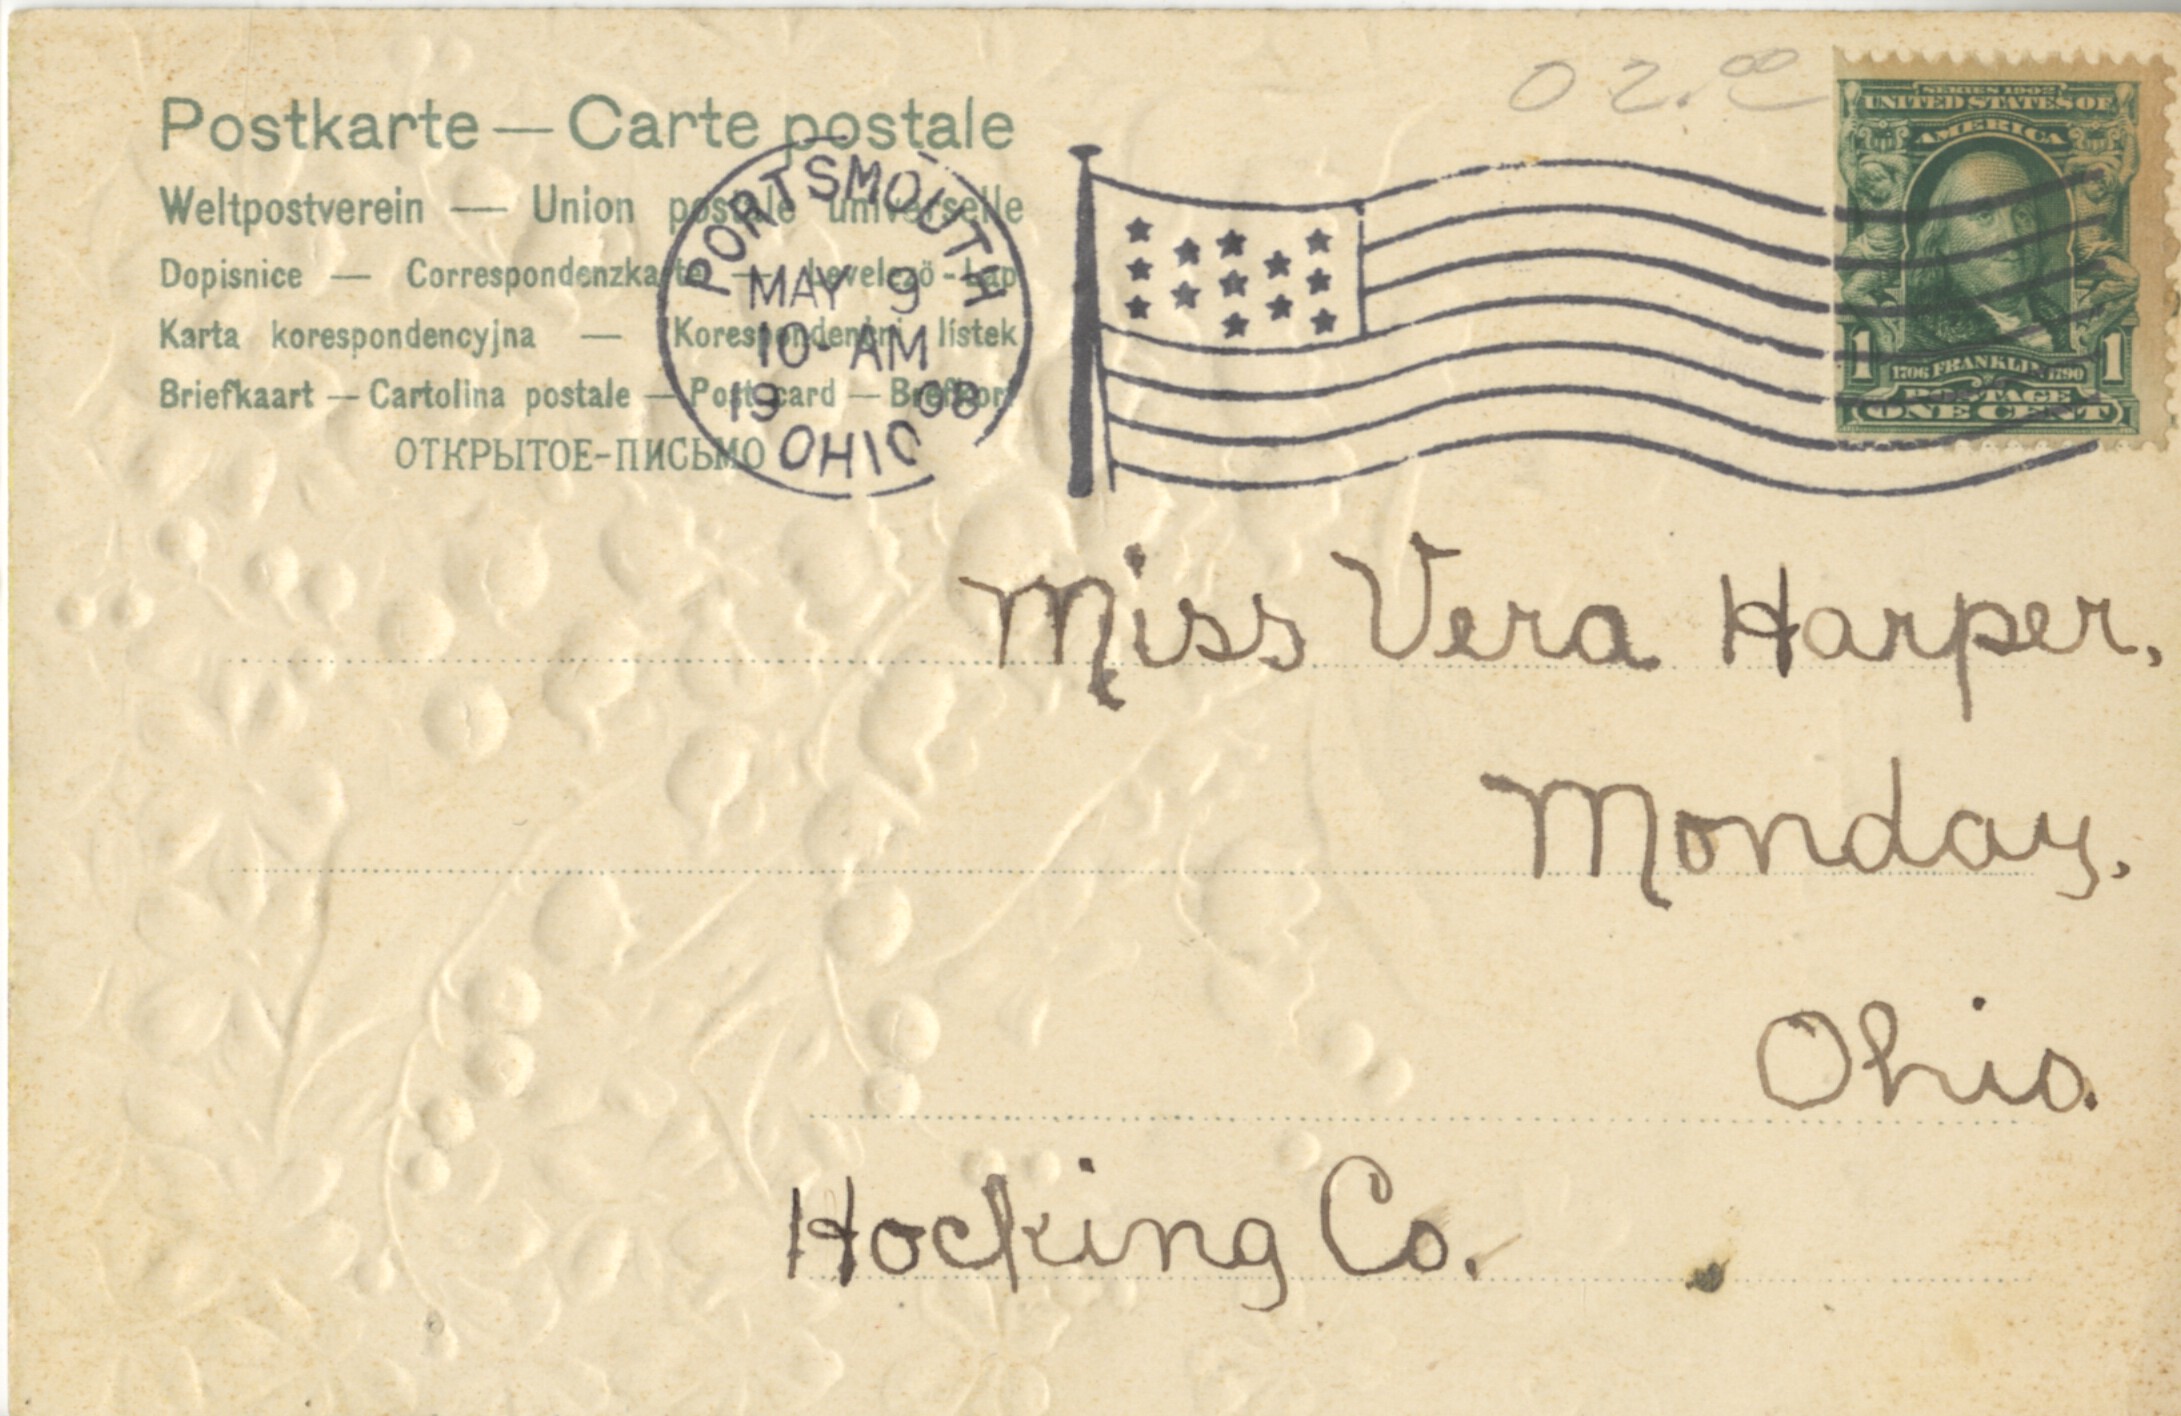 02.00
Postkarte — Carte postale
Weltpostverein — Union postale universelle
Dopisnice — Correspondenzkarte — Levelező-Lap
Karta korespondencyjna — Korespondenčni lístek
Briefkaart — Cartolina postale — Post card — Brefkort
ОТКРЫТОЕ-ПИСЬМО
PORTSMOUTH
MAY 9
10-AM
1908
OHIO
SERIES 1902
UNITED STATES OF
AMERICA
1 1
1706 FRANKLIN 1790
POSTAGE
ONE CENT
Miss Vera Harper,
Monday,
Ohio.
Hocking Co.